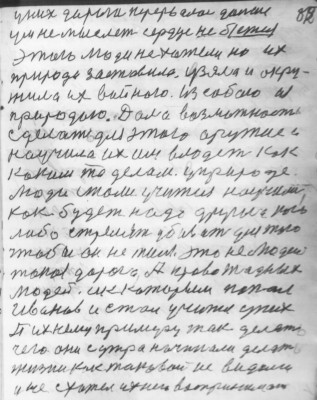 у них дорога перерыває дальше
ум не мыслет сердце не бьется
Этого люди не хотели но их
природа заставила. Взяла и окру-
жила их войною. Из собою и
природою. Дала возможность
сделать для этого оружие и
научила их им владеть как
каким то делам. У природе.
люди стали учится научились
как будет надо друг друга кого
либо стрелять убивать для того
чтобы он не жил. Это не людей
такая дорога. А провожадных
людей. с которыми попал
Иванов и стал учится у них
П их нему примеру так делать
чего они с утра начинали делать
жизни как таковой не видели
и не схотел их него воспринимать